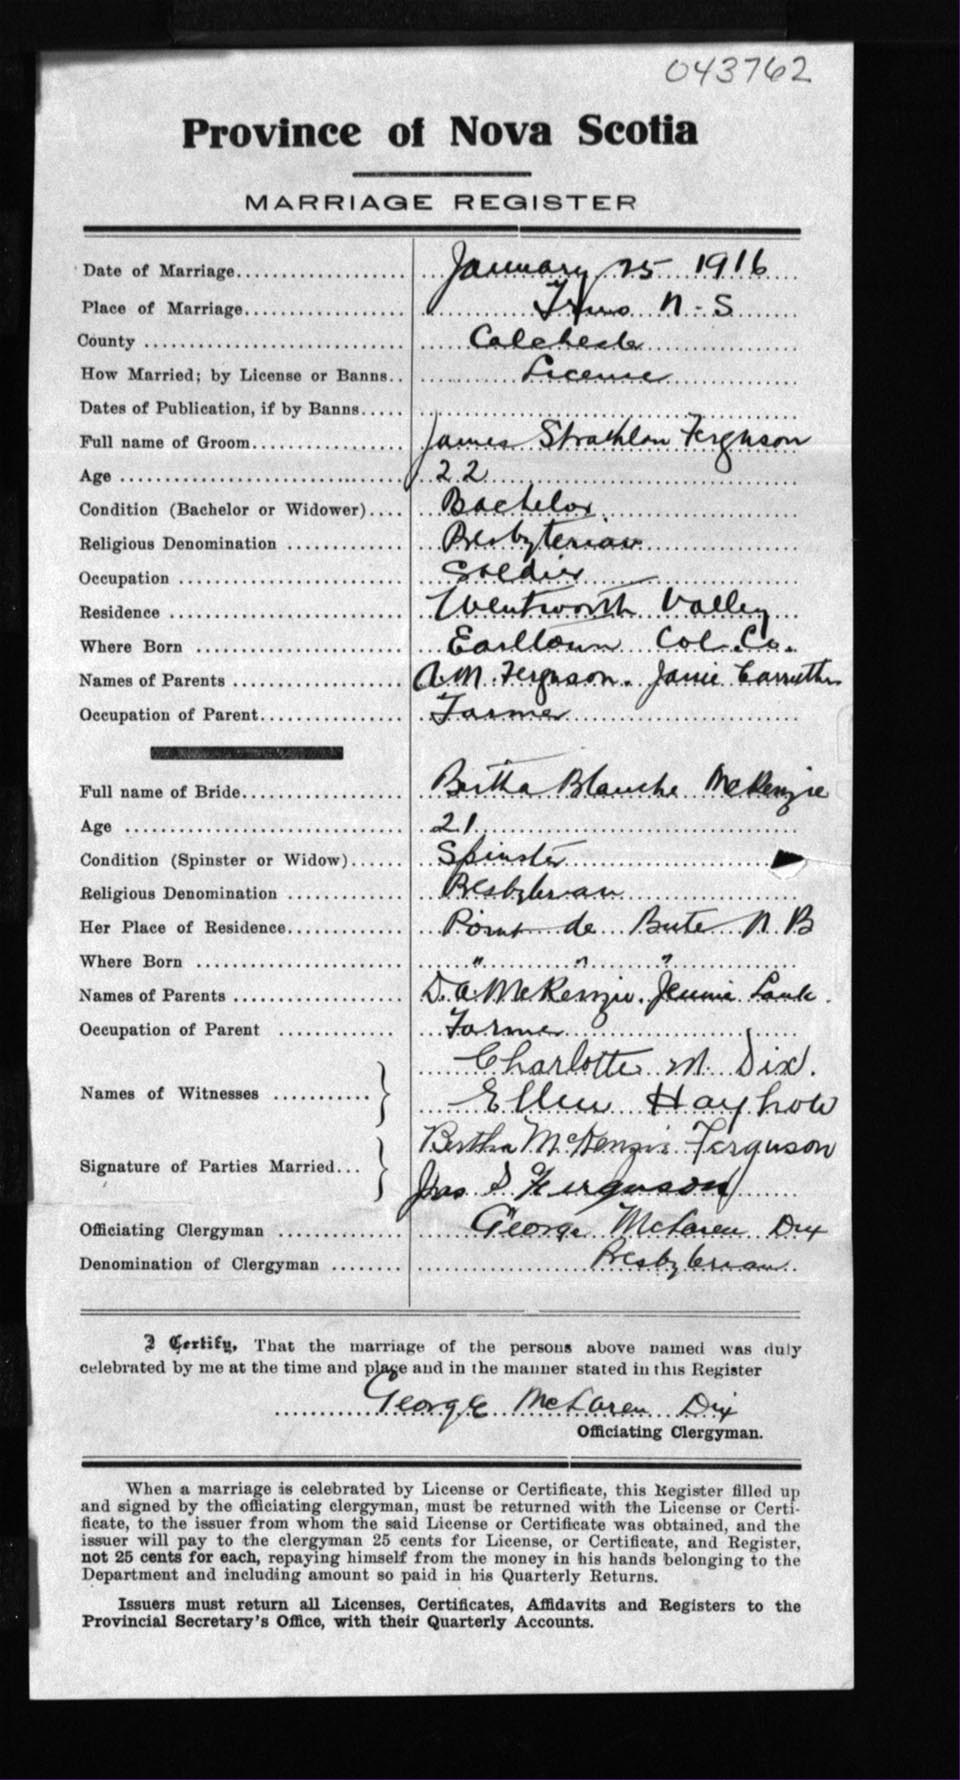 043762
Province of Nova Scotia
MARRIAGE REGISTER
Date of Marriage.................. January 25 1916
Place of Marriage.................. Truro N-S
County .................. Colchester
How Married; by License or Banns.. License
Dates of Publication, if by Banns.....
Full name of Groom.................. James Strathlon Ferguson
Age .................. 22
Condition (Bachelor or Widower).... Bachelor
Religious Denomination ............ Presbyterian
Occupation .................. Soldier
Residence .................. Wentworth Valley
Where Born .................. Earltown Col. Co.
Names of Parents .................. A. M. Ferguson. Janie Carruthers
Occupation of Parent.................. Farmer
Full name of Bride.................. Bertha Blanche McKenzie
Age .................. 21
Condition (Spinster or Widow)...... Spinster
Religious Denomination ............ Presbyterian
Her Place of Residence............ Point de Bute N B
Where Born .................. " " "
Names of Parents .................. D. A. McKenzie. Jennie
Occupation of Parent ............ Farmer
Charlotte M. Dix.
Names of Witnesses ...........
Ellen Hayhow
Bertha McKenzie Ferguson
Signature of Parties Married...
Jas S Ferguson
Officiating Clergyman ............ George McLaren Dix
Denomination of Clergyman ........ Presbyterian
I Certify, That the marriage of the persons above named was duly
celebrated by me at the time and place and in the manner stated in this Register
George McLaren Dix
Officiating Clergyman.
When a marriage is celebrated by License or Certificate, this Register filled up
and signed by the officiating clergyman, must be returned with the License or Certi-
ficate, to the issuer from whom the said License or Certificate was obtained, and the
issuer will pay to the clergyman 25 cents for License, or Certificate, and Register,
not 25 cents for each, repaying himself from the money in his hands belonging to the
Department and including amount so paid in his Quarterly Returns.
Issuers must return all Licenses, Certificates, Affidavits and Registers to the
Provincial Secretary's Office, with their Quarterly Accounts.